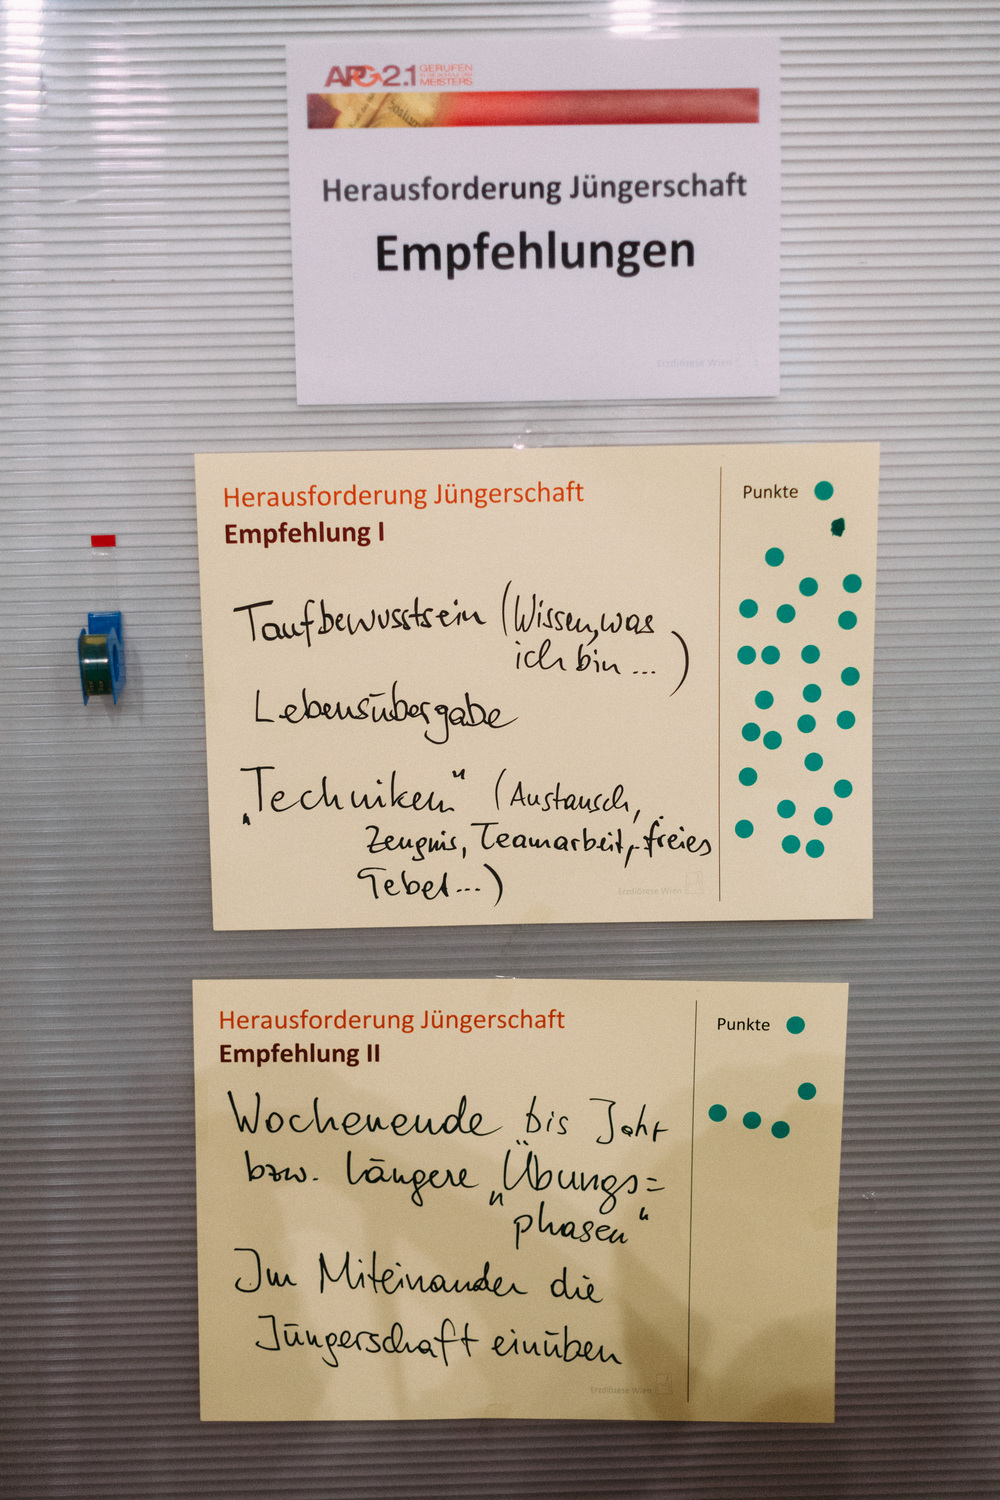 APG2.1 GERUFEN
MEISTERS
Herausforderung Jüngerschaft
Empfehlungen
Erzdiözese Wien
Herausforderung Jüngerschaft
Empfehlung I
Punkte
Taufbewusstsein (Wissen, was
ich bin ... )
Lebensübergabe
„Techniken" (Austausch,
Zeugnis, Teamarbeit, freies
Gebet ...)
Erzdiözese Wien
Herausforderung Jüngerschaft
Empfehlung II
Punkte
Wochenende bis Jahr
bzw. längere „Übungs=
phasen"
Im Miteinander die
Jüngerschaft einüben
Erzdiözese Wien